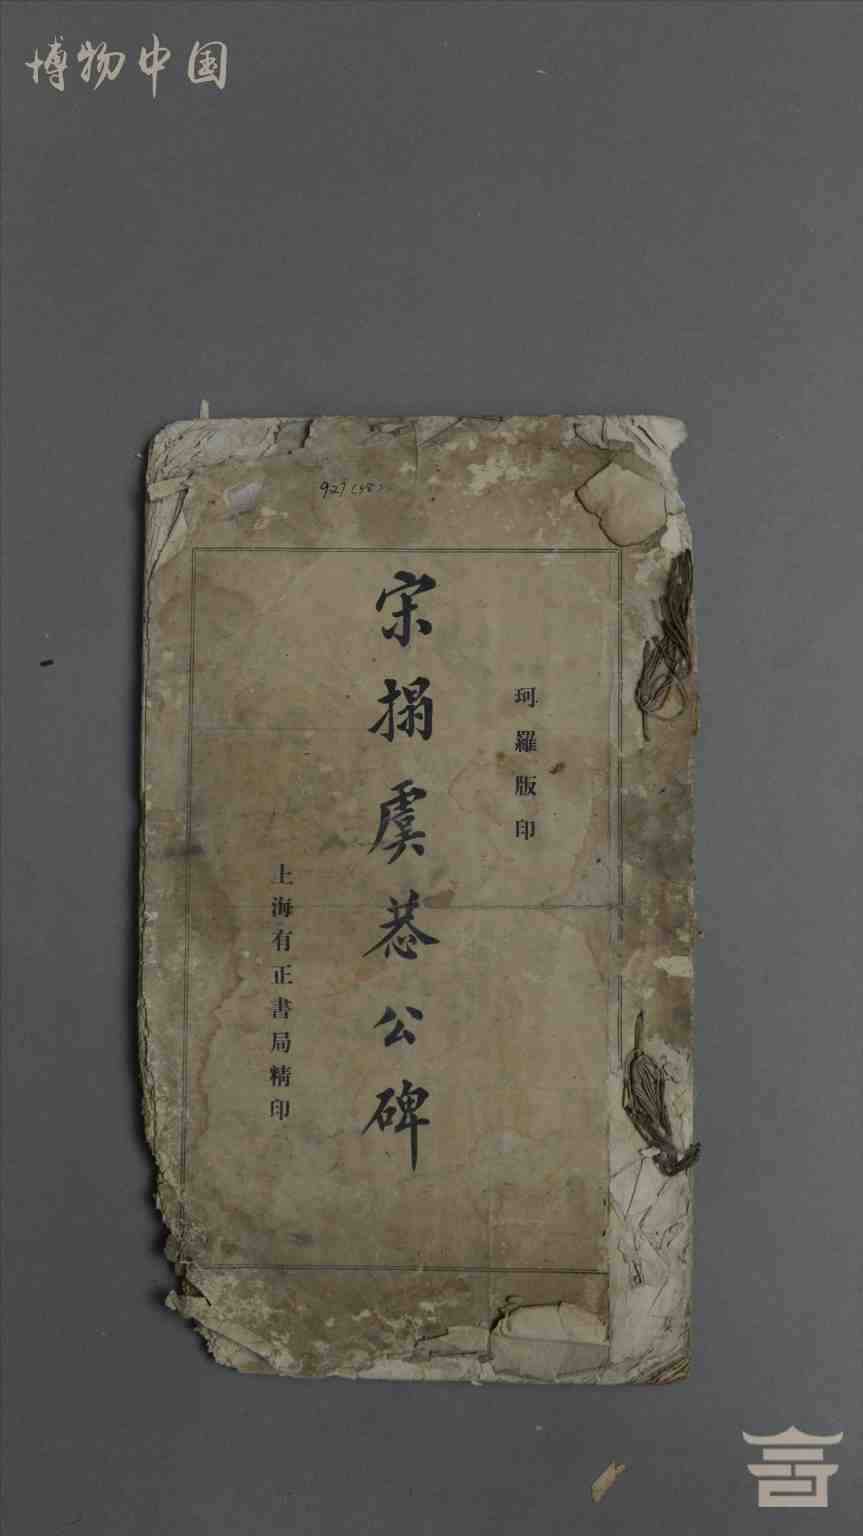 博物中国
927(58)
珂羅版印
宋搨虞恭公碑
上海有正書局精印